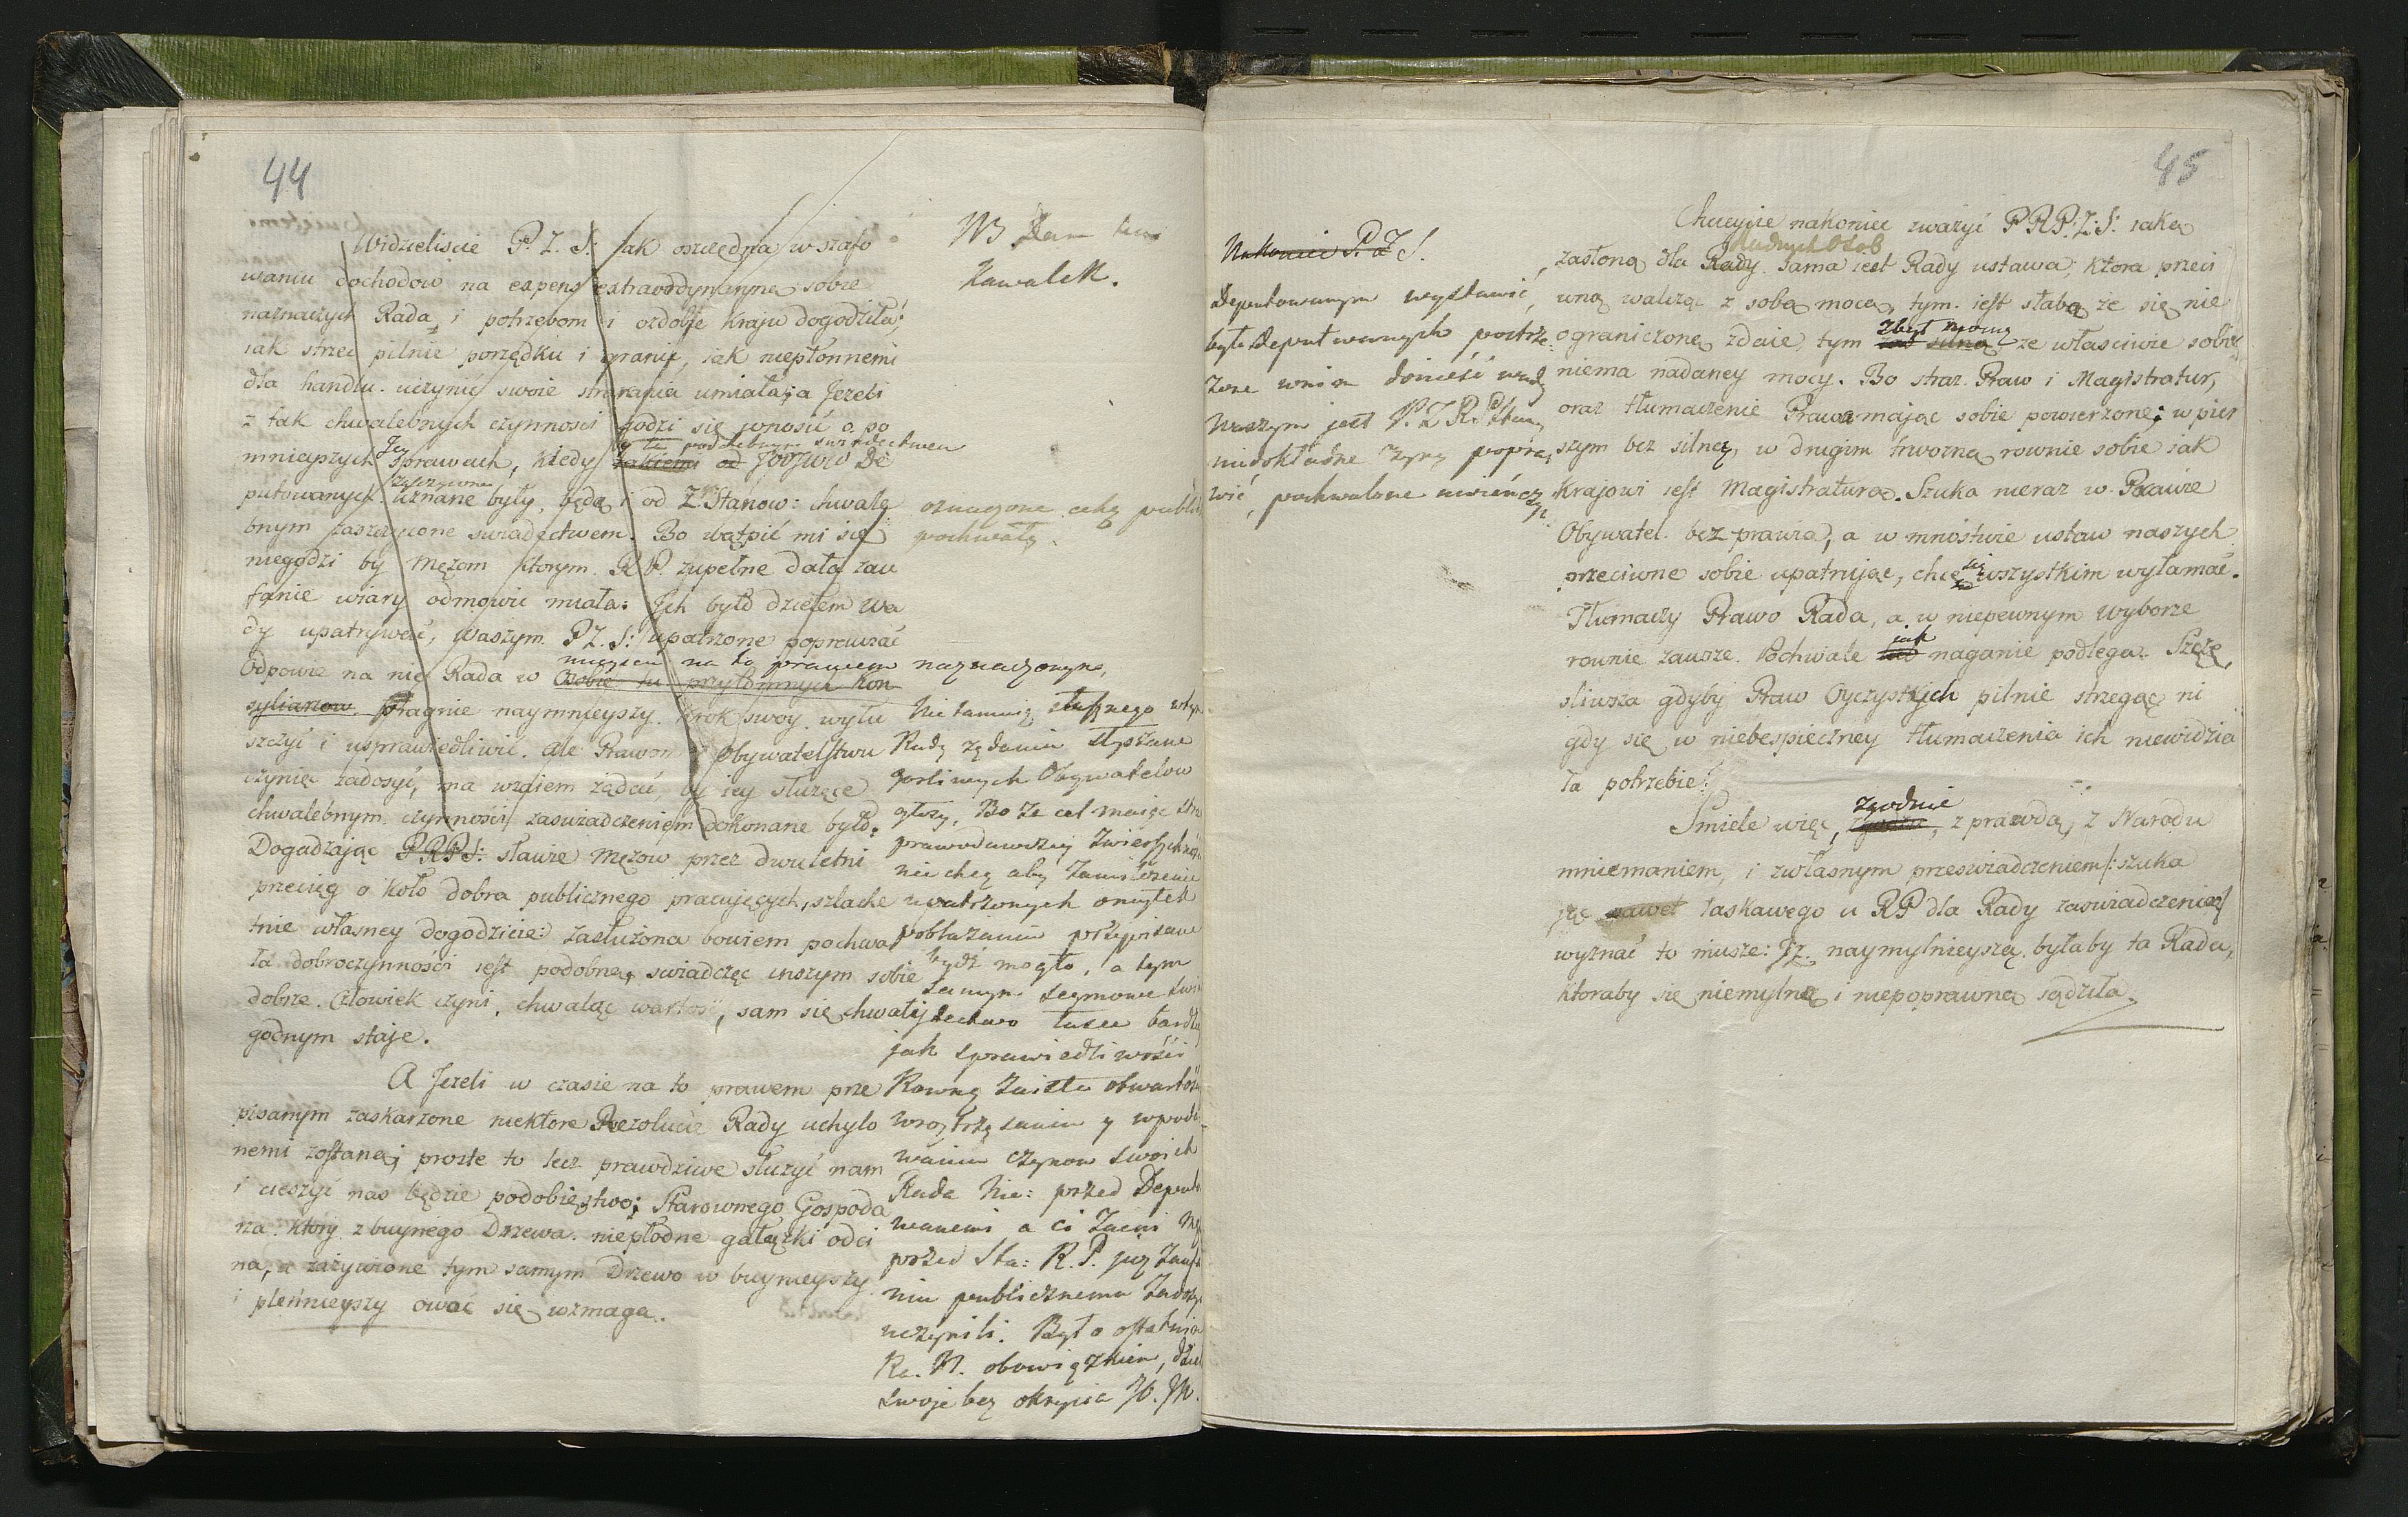 44
Widzieliscie P. Z. S: jak oszczędna w szafo
waniu dochodow na expens extraordynaryine sobie
naznaczych Rada, i potrzebom i ozdobie kraju dogodziła;
iak strzec pilnie porządku i granic, jak niepłonnemi
dla handlu uczynić swoie starania umiała; a Jezeli
z tak chwalebnych czynnosci godzi się wnosić o po
mnieyszych Jey sprawach, kiedy takiemi od JOOJWW De
y te pochlebnym swiadectwem
putowanych uznane były, będą i od Z. Stanow: chwale
zaszczycone
bnym zaszczycone swiadectwem. Bo wątpić mi się
niegodzi by Męzom ktorym RP. zupełne dała zau
fanie wiary odmowić miała: Jch było dziełem wa
dy upatrywać, waszym P Z. S: upatrzone poprawiać
Odpowie na nie Rada w Osobie tu przytomnych Kon
mieyscu na to prawem naznaczonym,
syliarzow pragnie naymnieyszy krok swoy wytłu
szczyć i usprawiedliwić. ale Prawom i Obywatelstwu
czyniąc zadosyć, ma wzaiem żądać, by iey służące
chwalebnym czynności zaswiadczeniem dokonane było.
Dogadzając PRPS: sławie Męzow przez dwuletni
przeciąg o koło dobra publicznego pracujących, szlache
tnie własney dogodzicie: zasłużona bowiem pochwa
ła dobroczynności iest podobna, swiadcząc inszym sobie
dobrze Człowiek czyni, chwaląc wartość, sam się chwały
godnym staje.
A Jezeli w czasie na to prawem prze
pisanym zaskarzone niektore Rezolucie Rady uchylo
nemi zostaną; proste to lecz prawdziwe służyć nam
i cieszyć nas będzie podobieństwo; Starownego Gospoda
rza ktory z buynego Drzewa niepłodne gałązki odci
na, a zażywione tym samym Drzewo w buynieyszy
i plennieyszy owoc się wzmaga.
NB Dam ten
Kawalek.
oznaczone cechą publi
pochwały.
Nietamuią słusznego
Radę żądania słyszane
gorliwych Obywatelow
głosy, Bo za cel maiąc
prawodawczey zwierzchności
nie chcą aby zamilczenie
upatrzonych omyłek
pobłażaniu przypisane
bydź mogło, a tym
samym Seymowe swia
dectwo łasce bardziey
jak sprawiedliwości
Rowną zaiste otwartość
w roztrząsaniu y wpodo
waniu czynow swoich
Rada Nie: przed Deputo
wanemi a ci zacni
przed Sta: R. P. już zaufa
niu publicznemu zadosyć
uczynili. Było ostatnia
Ra. N. obowiązkiem, dzieł
swoje bez okrycia JO. JW.
Nakoniec P. Z S.
Deputowanym wystawić,
było Deputowanych postrze
żone w nim donieść wady
Waszym jest P. Z R. P. Stany
niedokładne czyny popra
wić, pochwalone uwieńczyć.
45
Chcieycie nakoniec zważyć PRP: Z: S: iaką
zasłoną dla Rady Sama iest Rady ustawa, ktora przeci
wną walcząc z sobą mocą, tym iest słabą że się nie
ograniczoną zdaie, tym zaś silną ze właściwie sobie
zbyt mocną
niema nadaney mocy. Bo straz Praw i Magistratur,
oraz tłumaczenie Prawa mając sobie powierzone; w pier
szym bez silną, w drugim trwozną rownie sobie iak
krajowi iest Magistraturą. Szuka nieraz w Prawie
Obywatel bez prawia, a w mnóstwie ustaw naszych
przeciwne sobie upatrując, chce się wszystkim wyłamać.
Tłumaczy Prawo Rada, a w niepewnym wyborze
rownie zawsze Pochwale jak naganie podlega. Szczę
sliwsza gdyby Praw Oyczystych pilnie strzegąc ni
gdy się w niebespieczney tłumaczenia ich niewidzia
ła potrzebie!
Smiele więc, zgodnie, z prawdą, z Narodu
mniemaniem, i zwłasnym przeswiadczeniem /: szuka
jąc nawet łaskawego u RP dla Rady zaswiadczenia:/
wyznać to muszę: Jż naymylnieyszą byłaby ta Rada,
ktoraby się niemylną i niepoprawną sądziła.